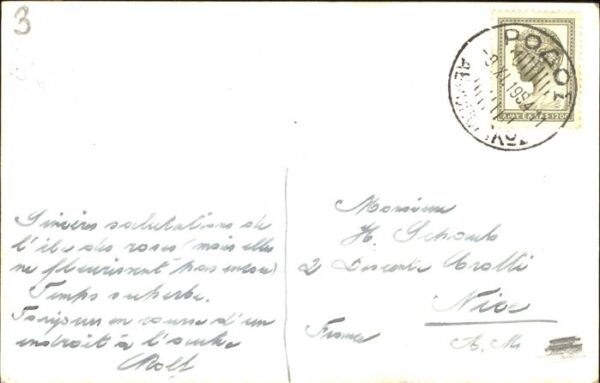 3
ΡΟΔΟΣ
XI 1954
ΔΡΧ
1200
Sincères salutations de
l'île des roses (mais elles
ne fleurissent pas encore)
Temps superbe.
Toujours en course d'un
endroit à l'autre
Rolf
Monsieur
H.
2 Descente Crotti
Nice
France
A. M.